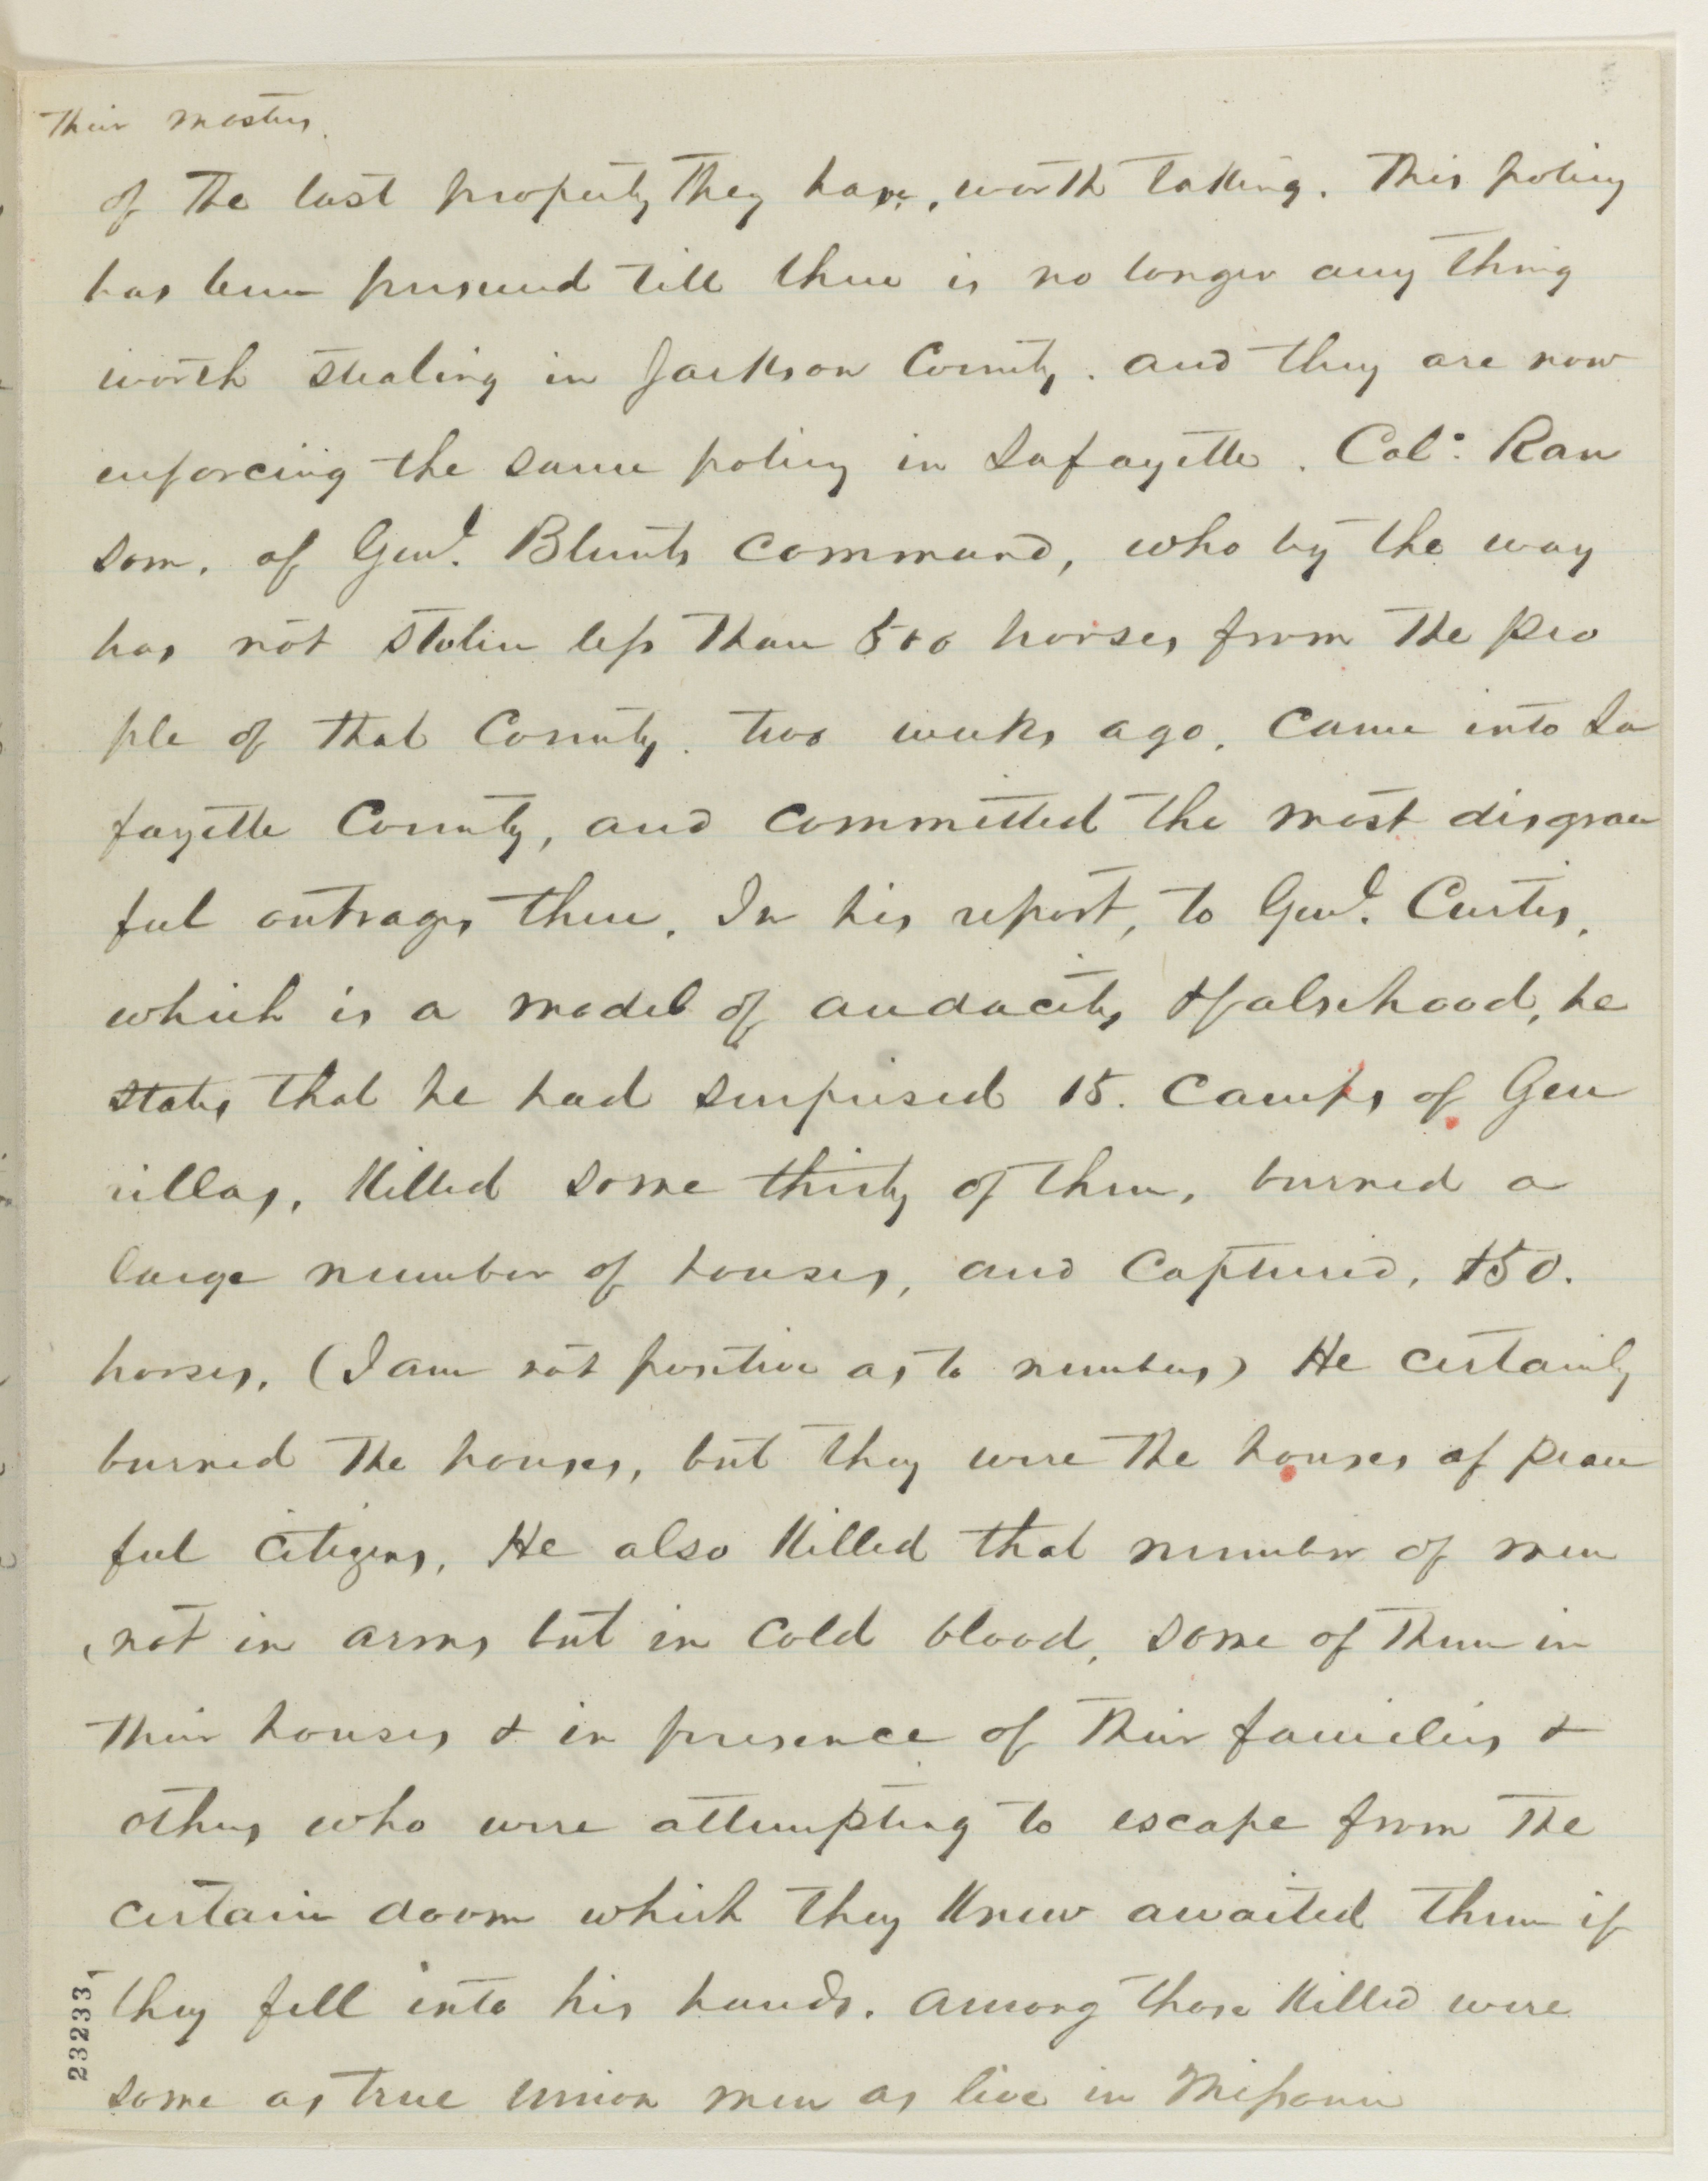 their masters
of the last property they have, worth taking. This policy
has been pursued till there is no longer any thing
worth stealing in Jackson County. and they are now
enforcing the same policy in Lafayette. Col: Ran
som, of Genl. Blunts command, who by the way
has not stolen less than 500 horses from the peo
ple of that County. two weeks ago, came into La
fayette County, and committed the most disgrace
ful outrages there. In his report, to Genl. Curtis,
which is a model of audacity & falsehood, he
states that he had surprised 15. camps of Guer
rillas, killed some thirty of them, burned a
large number of houses, and captured, 150.
horses, (I am not positive as to numbers) He certainly
burned the houses, but they were the houses of peace
ful citizens, He also killed that number of men
, not in arms but in cold blood, some of them in
their houses & in presence of their families &
others who were attempting to escape from the
certain doom which they knew awaited them if
they fell into his hands. among those killed were
some as true union men as live in Missouri
23233